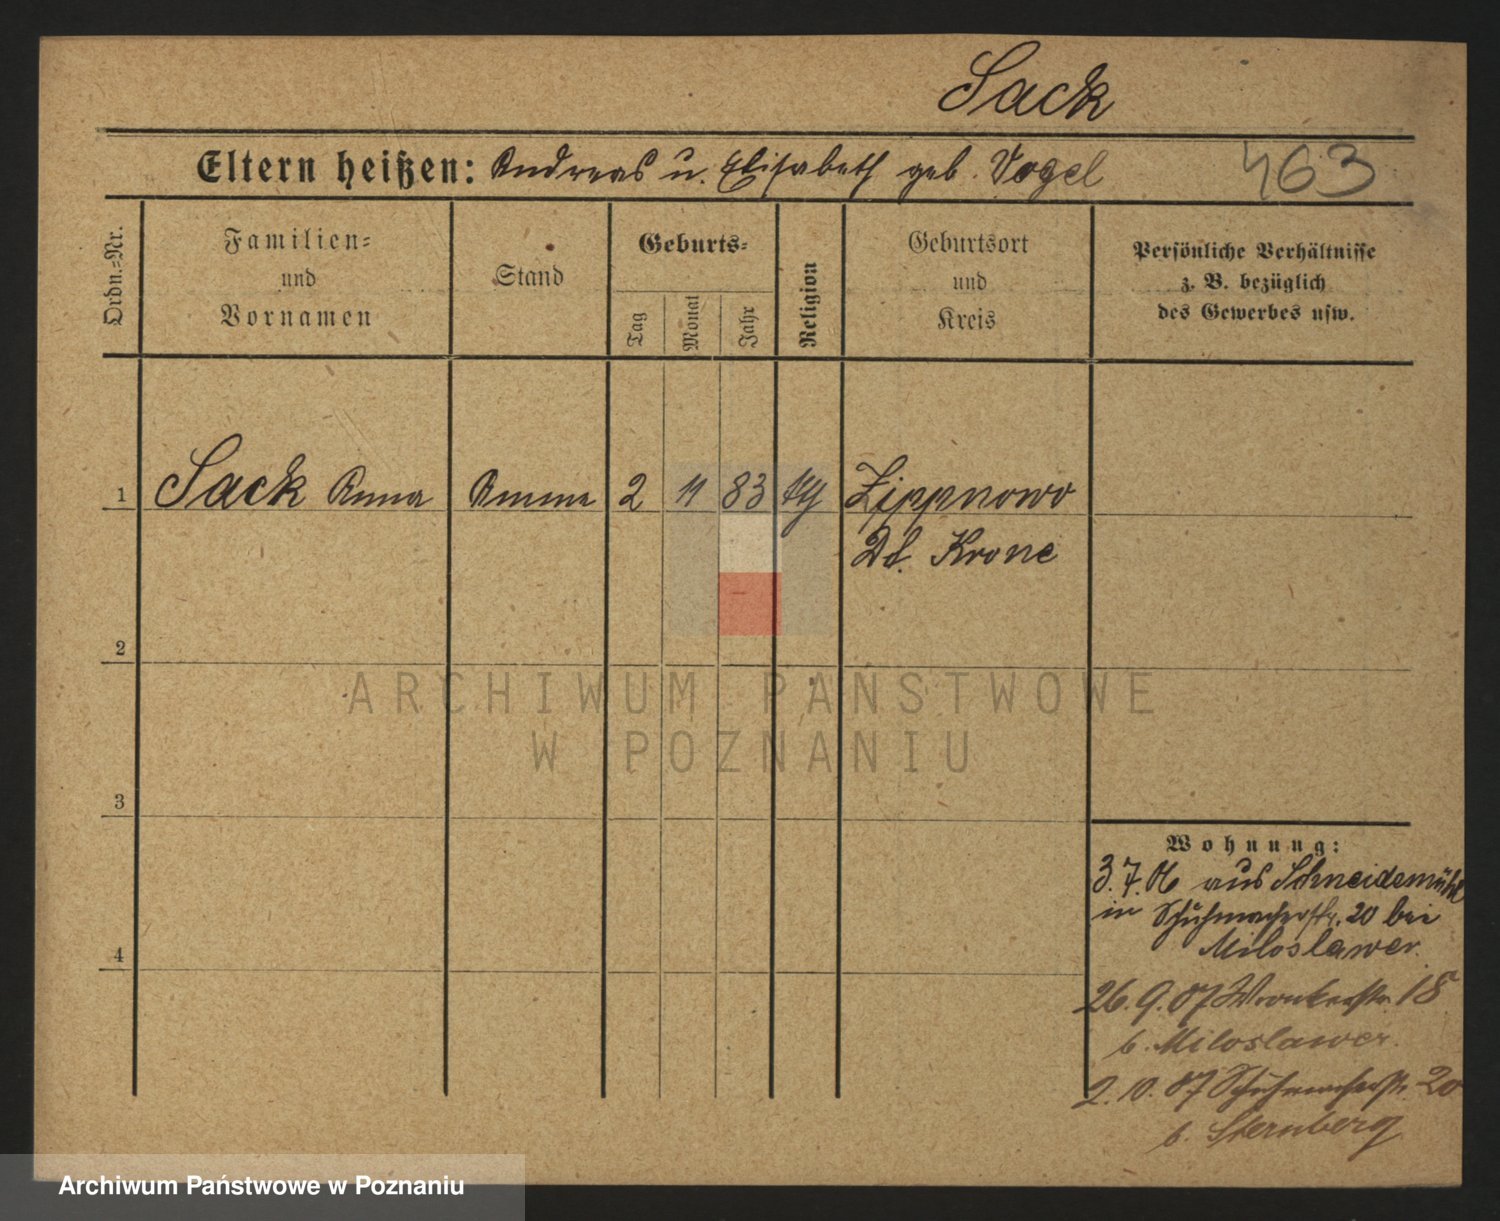 Sack
Eltern heißen: Andreas u. Elisabeth geb. Vogel 463
Ordn.-Nr.
Familien-
und
Vornamen
Stand
Geburts-
Tag
Monat
Jahr
Religion
Geburtsort
und
Kreis
Persönliche Verhältnisse
z. B. bezüglich
des Gewerbes usw.
1 Sack Anna Amme 2 11 83 Zippnowo
Dt. Krone
2
ARCHIWUM PAŃSTWOWE
W POZNANIU
3
Wohnung:
3.7.06 aus Schneidemühl
in Schuhmacherstr. 20 bei
Miloslawer.
4
26.9.07 Wronkerstr. 18
b. Miloslawer.
2.10.07 Schuhmacherstr. 20
b. Sternberg
Archiwum Państwowe w Poznaniu